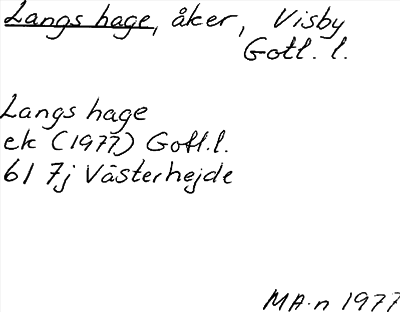 Langs hage, åker, Visby
Gotl. l.
Langs hage
ek (1977) Gotl.l.
6I 7j Västerhejde
MA:n 1977